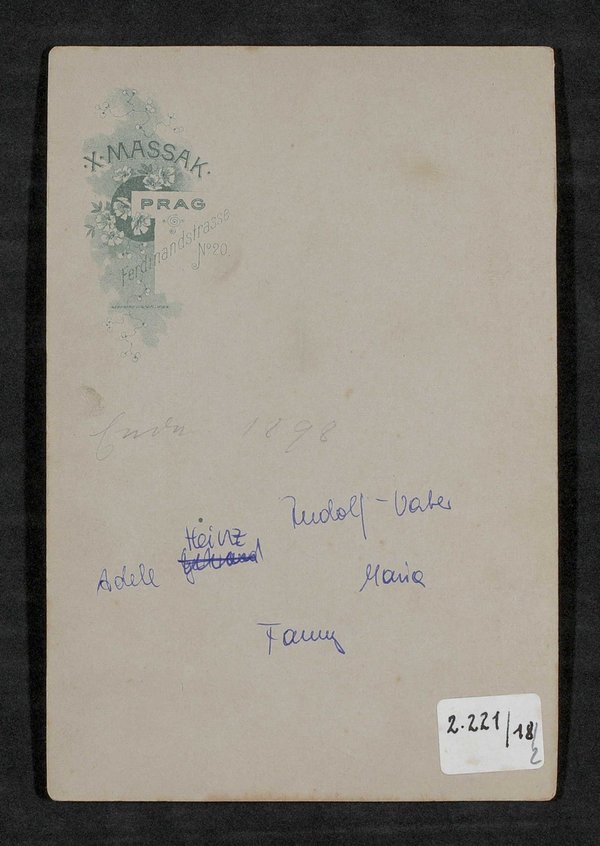 X. MASSAK.
PRAG
Ferdinandstrasse
No 20.
Ende 1898
Rudolf - Vater
Heinz
Adele
Maria
Fanny
2.221/18/2